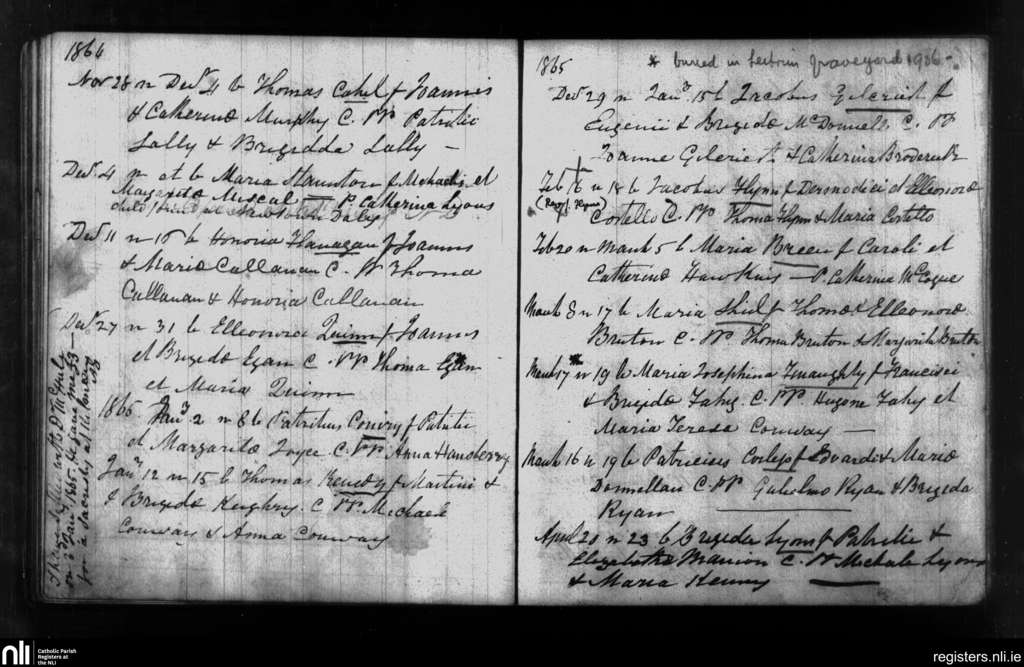 1864
Nov 28 n Dec 4 b Thomas Cahel f Joannis
& Catherine Murphy C. PP Patritii
Lally & Brigidda Lally —
Dec 4 n et b Maria Staunton f Michaelis et
Margarita Muscal — P. Catherina Lyons
Dec 11 n 18 b Honoria Flanagan f Joannis
& Maria Callanan C. PP Thoma
Callanan & Honoria Callanan
Dec 27 n 31 b Elleonora Quinn f Joannis
et Brigida Egan C. PP Thoma Egan
et Maria Quinn
1865 Jany 2 n 8 b Patritius Conroy f Patritii
et Margarita Joyce C. PP Anna Hansberry
Jany 12 n 15 b Thomas f Martini &
Brigida C. PP. Michaele
Conway & Anna Conway
on 3d Jany 1865. He gave me £3 —
1865
* buried in graveyard 1936 -
Dec 29 n Jany 15 b Jacobus Gilcrist f
Eugenii & Brigida McDonnell C. PP
Joanne Gilcrist & Catherina Broderick
Feb 16 n 18 b Jacobus Flynn f Dermodici et Elleonora
Costello C. PP Thoma Flynn & Maria Costello
Feb 20 n March 5 b Maria Breen f Caroli et
Catherina Hawkins — P. Catherina McCogue
March 8 n 17 b Maria Shiel f Thoma & Elleonora
Bruton C. PP Thoma Bruton & Margarita Bruton
March 17 n 19 b Maria Josephina Tynaughty f Francisci
& Brigida Fahy C. PP. Hugone Fahy et
Maria Teresa Conway —
March 16 n 19 b Patricius f Edvardi & Maria
Donnellan C. PP Gulielmo Ryan & Brigida
Ryan
April 20 n 23 b Brigida Lyons f Patritii &
Elizabetha Mannion C. PP Michaele Lyons
& Maria Kenny
nli Catholic Parish
Registers at
the NLI
registers.nli.ie